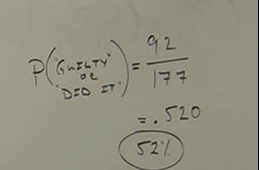 P("GUILTY" OR "DID IT") = 92/177
= .520
52%